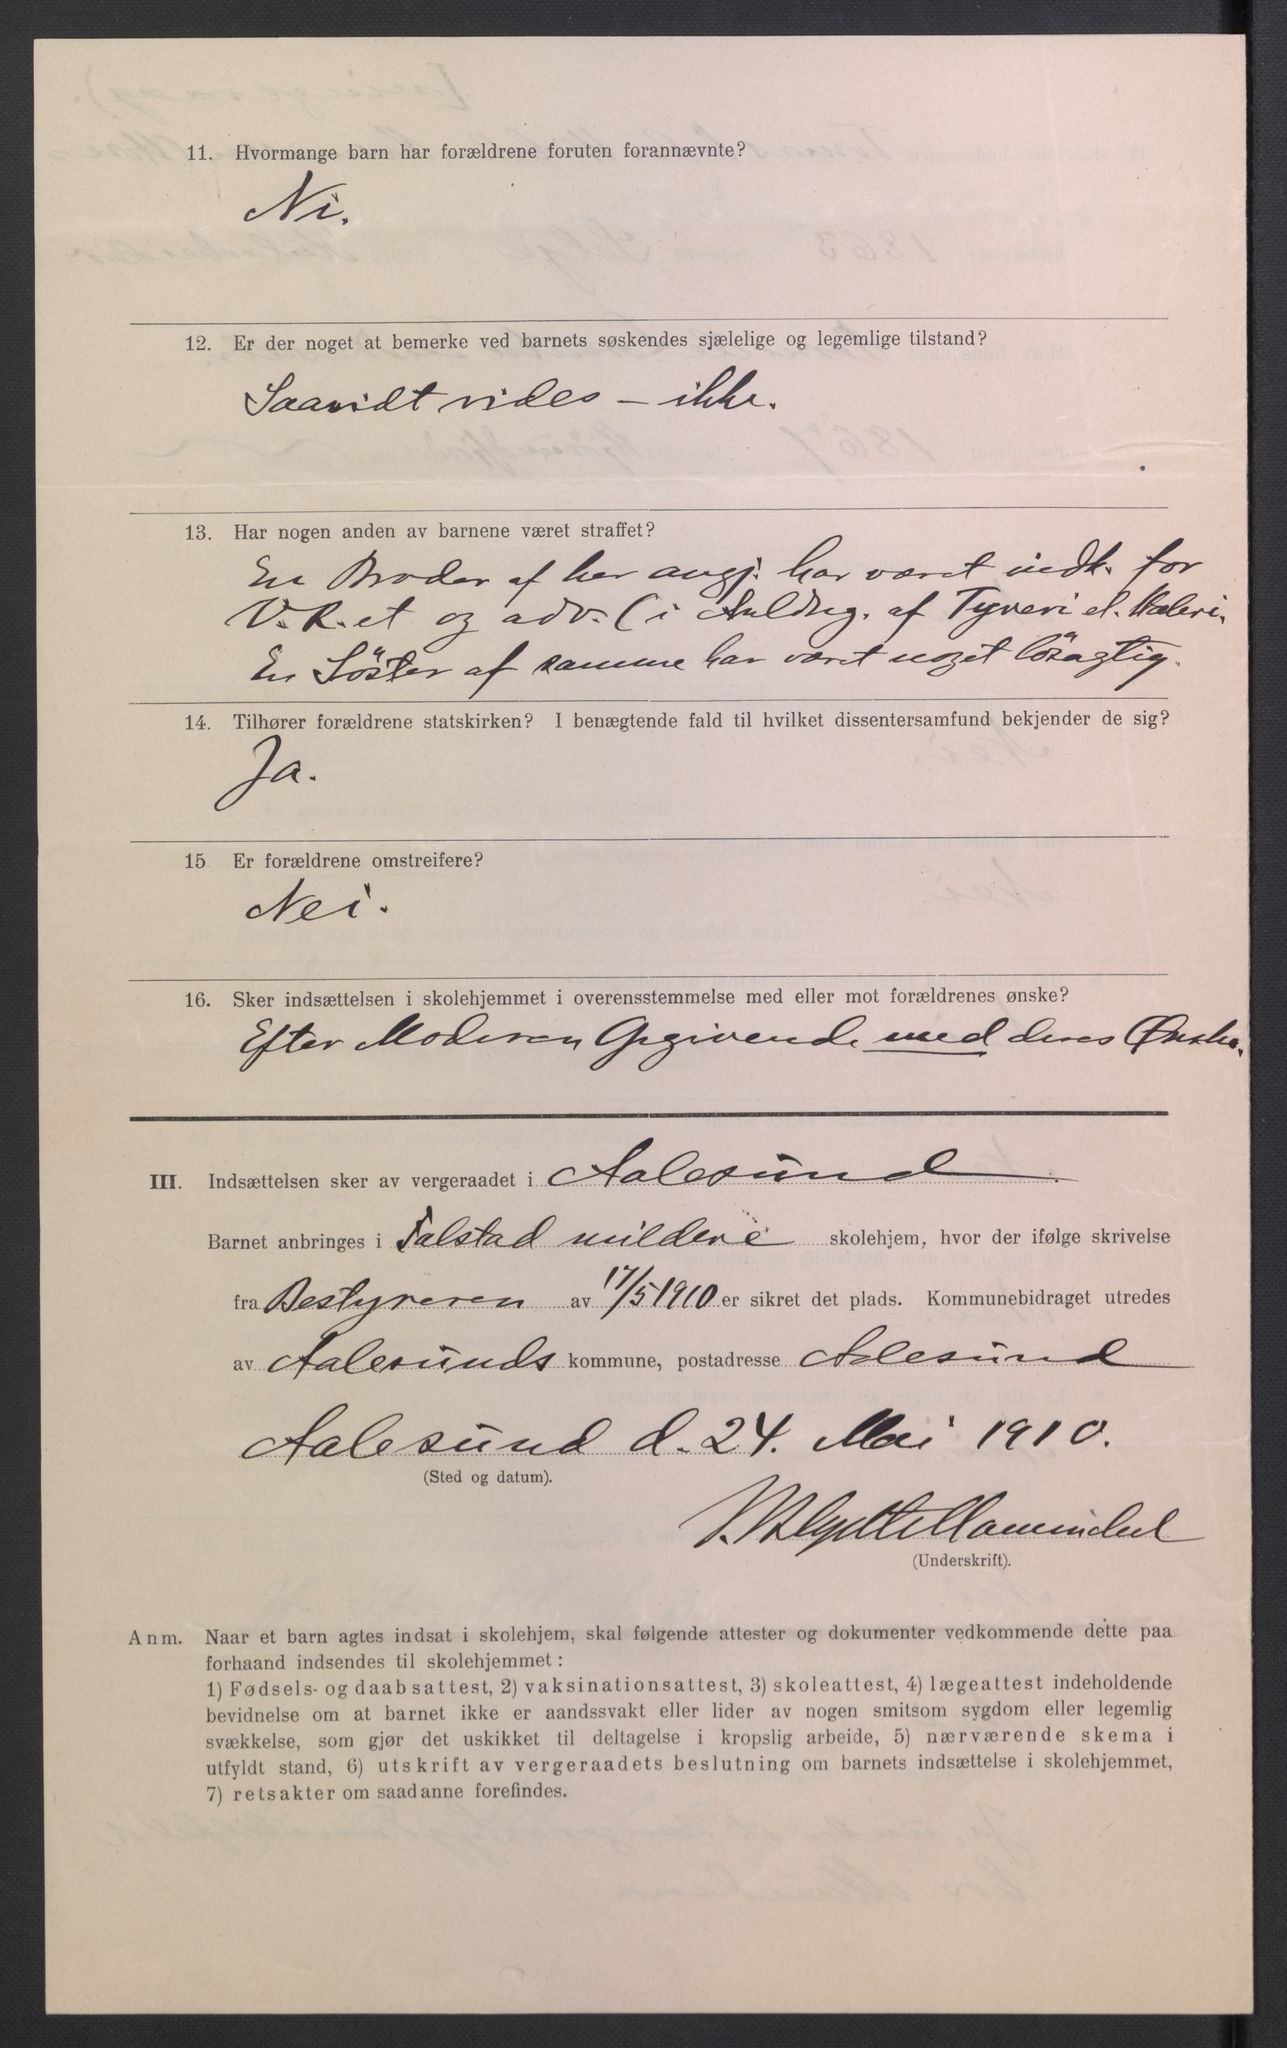 11. Hvormange barn har forældrene foruten forannævnte?
Ni.
12. Er der noget at bemerke ved barnets søskendes sjælelige og legemlige tilstand?
Saavidt vides – ikke.
13. Har nogen anden av barnene været straffet?
En Broder af her angj. har været indk. for
V.R.et og adv. (i Anldng. af Tyveri el. Hæleri.
En Söster af samme har været noget lösagtig.
14. Tilhører forældrene statskirken? I benægtende fald til hvilket dissentersamfund bekjender de sig?
Ja.
15 Er forældrene omstreifere?
Nei.
16. Sker indsættelsen i skolehjemmet i overensstemmelse med eller mot forældrenes ønske?
Efter Moderen Opgivende med deres Ønske.
III. Indsættelsen sker av vergeraadet i Aalesund
Barnet anbringes i Falstad mildere skolehjem, hvor der ifølge skrivelse
fra Bestyreren av 17/5 1910 er sikret det plads. Kommunebidraget utredes
av Aalesunds kommune, postadresse Aalesund
Aalesund d. 24. Mai 1910.
(Sted og datum).
(Underskrift).
Anm. Naar et barn agtes indsat i skolehjem, skal følgende attester og dokumenter vedkommende dette paa
forhaand indsendes til skolehjemmet:
1) Fødsels- og daabsattest, 2) vaksinationsattest, 3) skoleattest, 4) lægeattest indeholdende
bevidnelse om at barnet ikke er aandssvakt eller lider av nogen smitsom sygdom eller legemlig
svækkelse, som gjør det uskikket til deltagelse i kropslig arbeide, 5) nærværende skema i
utfyldt stand, 6) utskrift av vergeraadets beslutning om barnets indsættelse i skolehjemmet,
7) retsakter om saadanne forefindes.